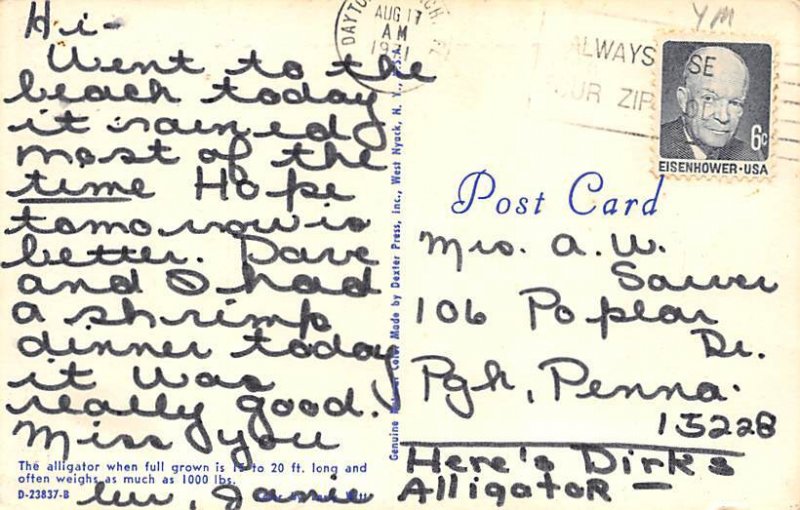 Hi-
Went to the
beach today
it rained
most of the
time Hope
tomorrow is
better. Dave
and I had
a shrimp
dinner today
it was
really good.
Miss you
luv, Janie
The alligator when full grown is 15 to 20 ft. long and
often weighs as much as 1000 lbs.
D-23837-B
Genuine Natural Color Made by Dexter Press, Inc., West Nyack, N. Y., U.S.A.
AUG 17
AM
ALWAYS USE
YOUR ZIP CODE
YM
6c
EISENHOWER·USA
Post Card
Mrs. A.W.
Sawer
106 Poplar
Dr.
Pgh, Penna.
15228
Here's Dirk's
Alligator